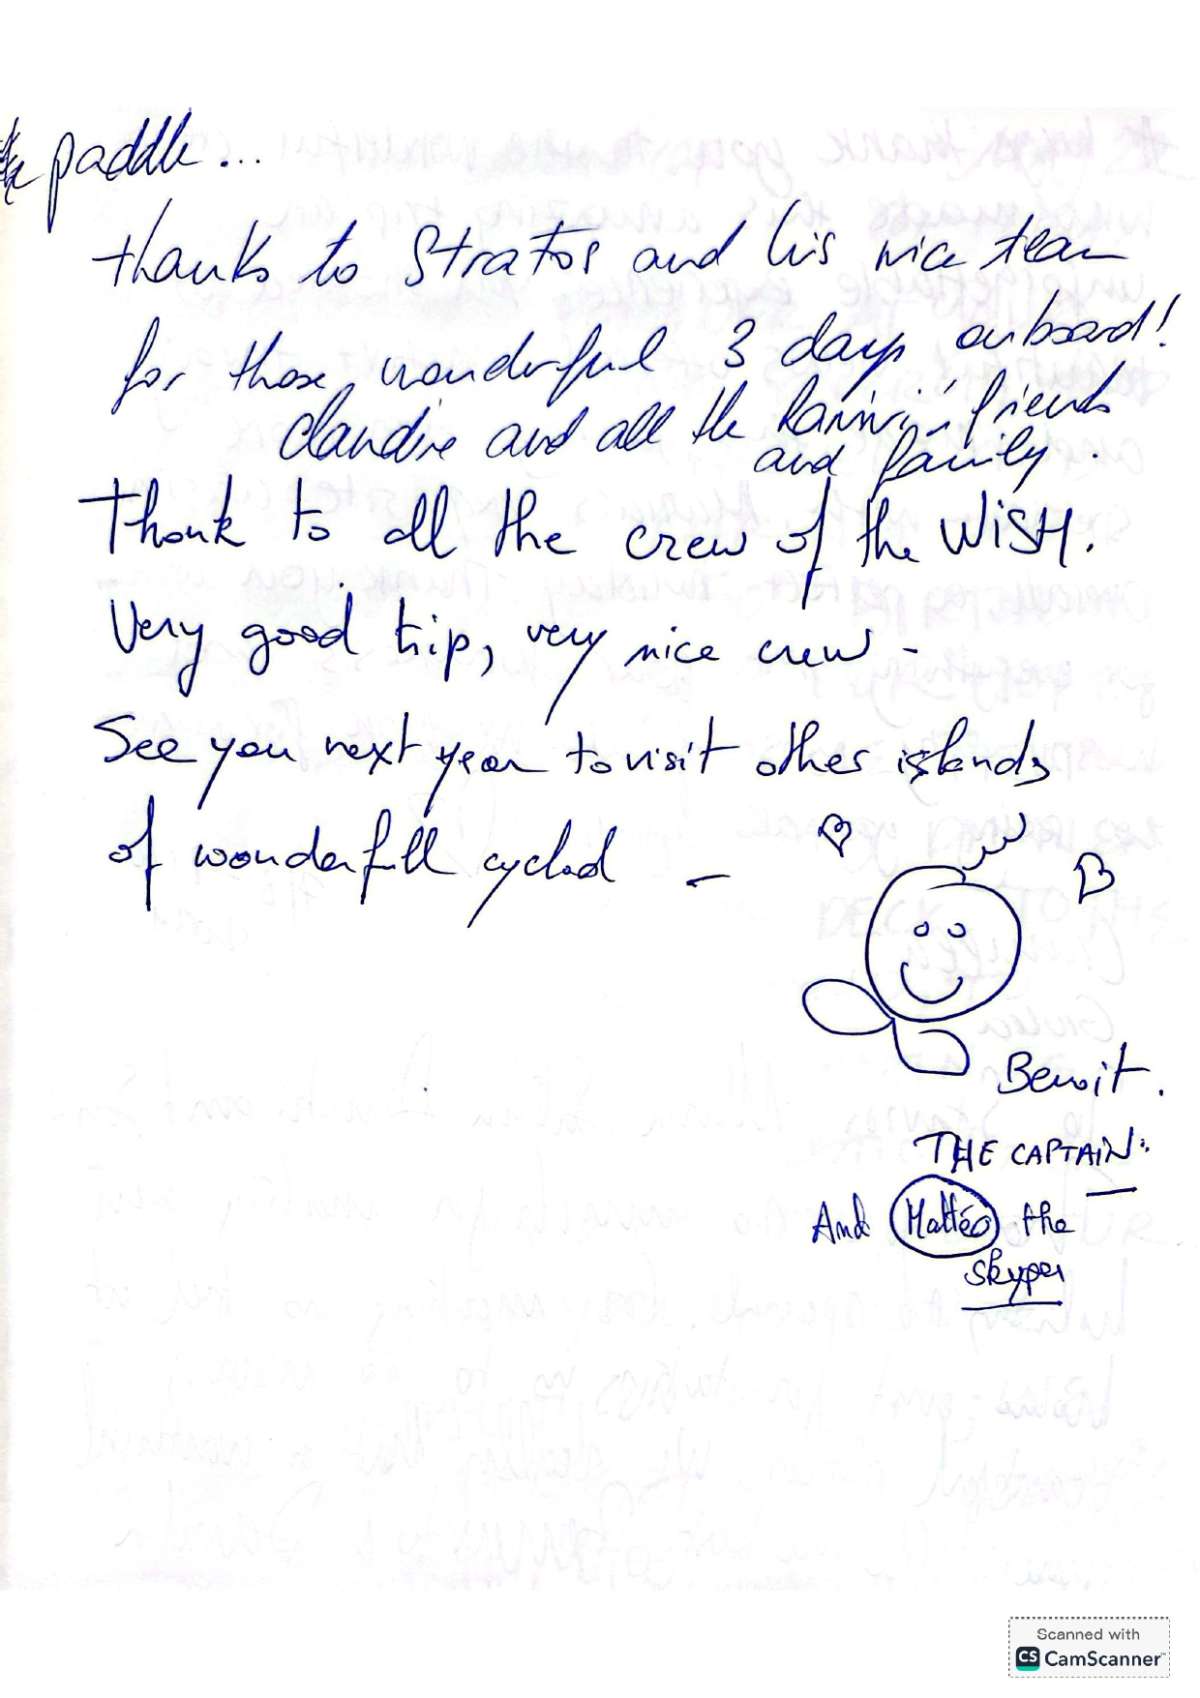 paddle...
thanks to Stratos and his nice team
for those wonderful 3 days onboard!
Claudine and all the friends
and family.
Thank to all the crew of the WISH.
Very good trip, very nice crew -
See you next year to visit other islands
of wonderfull cyclad -
Benoit.
THE CAPTAIN.
And Mattéo the
skyper
Scanned with
CS CamScanner